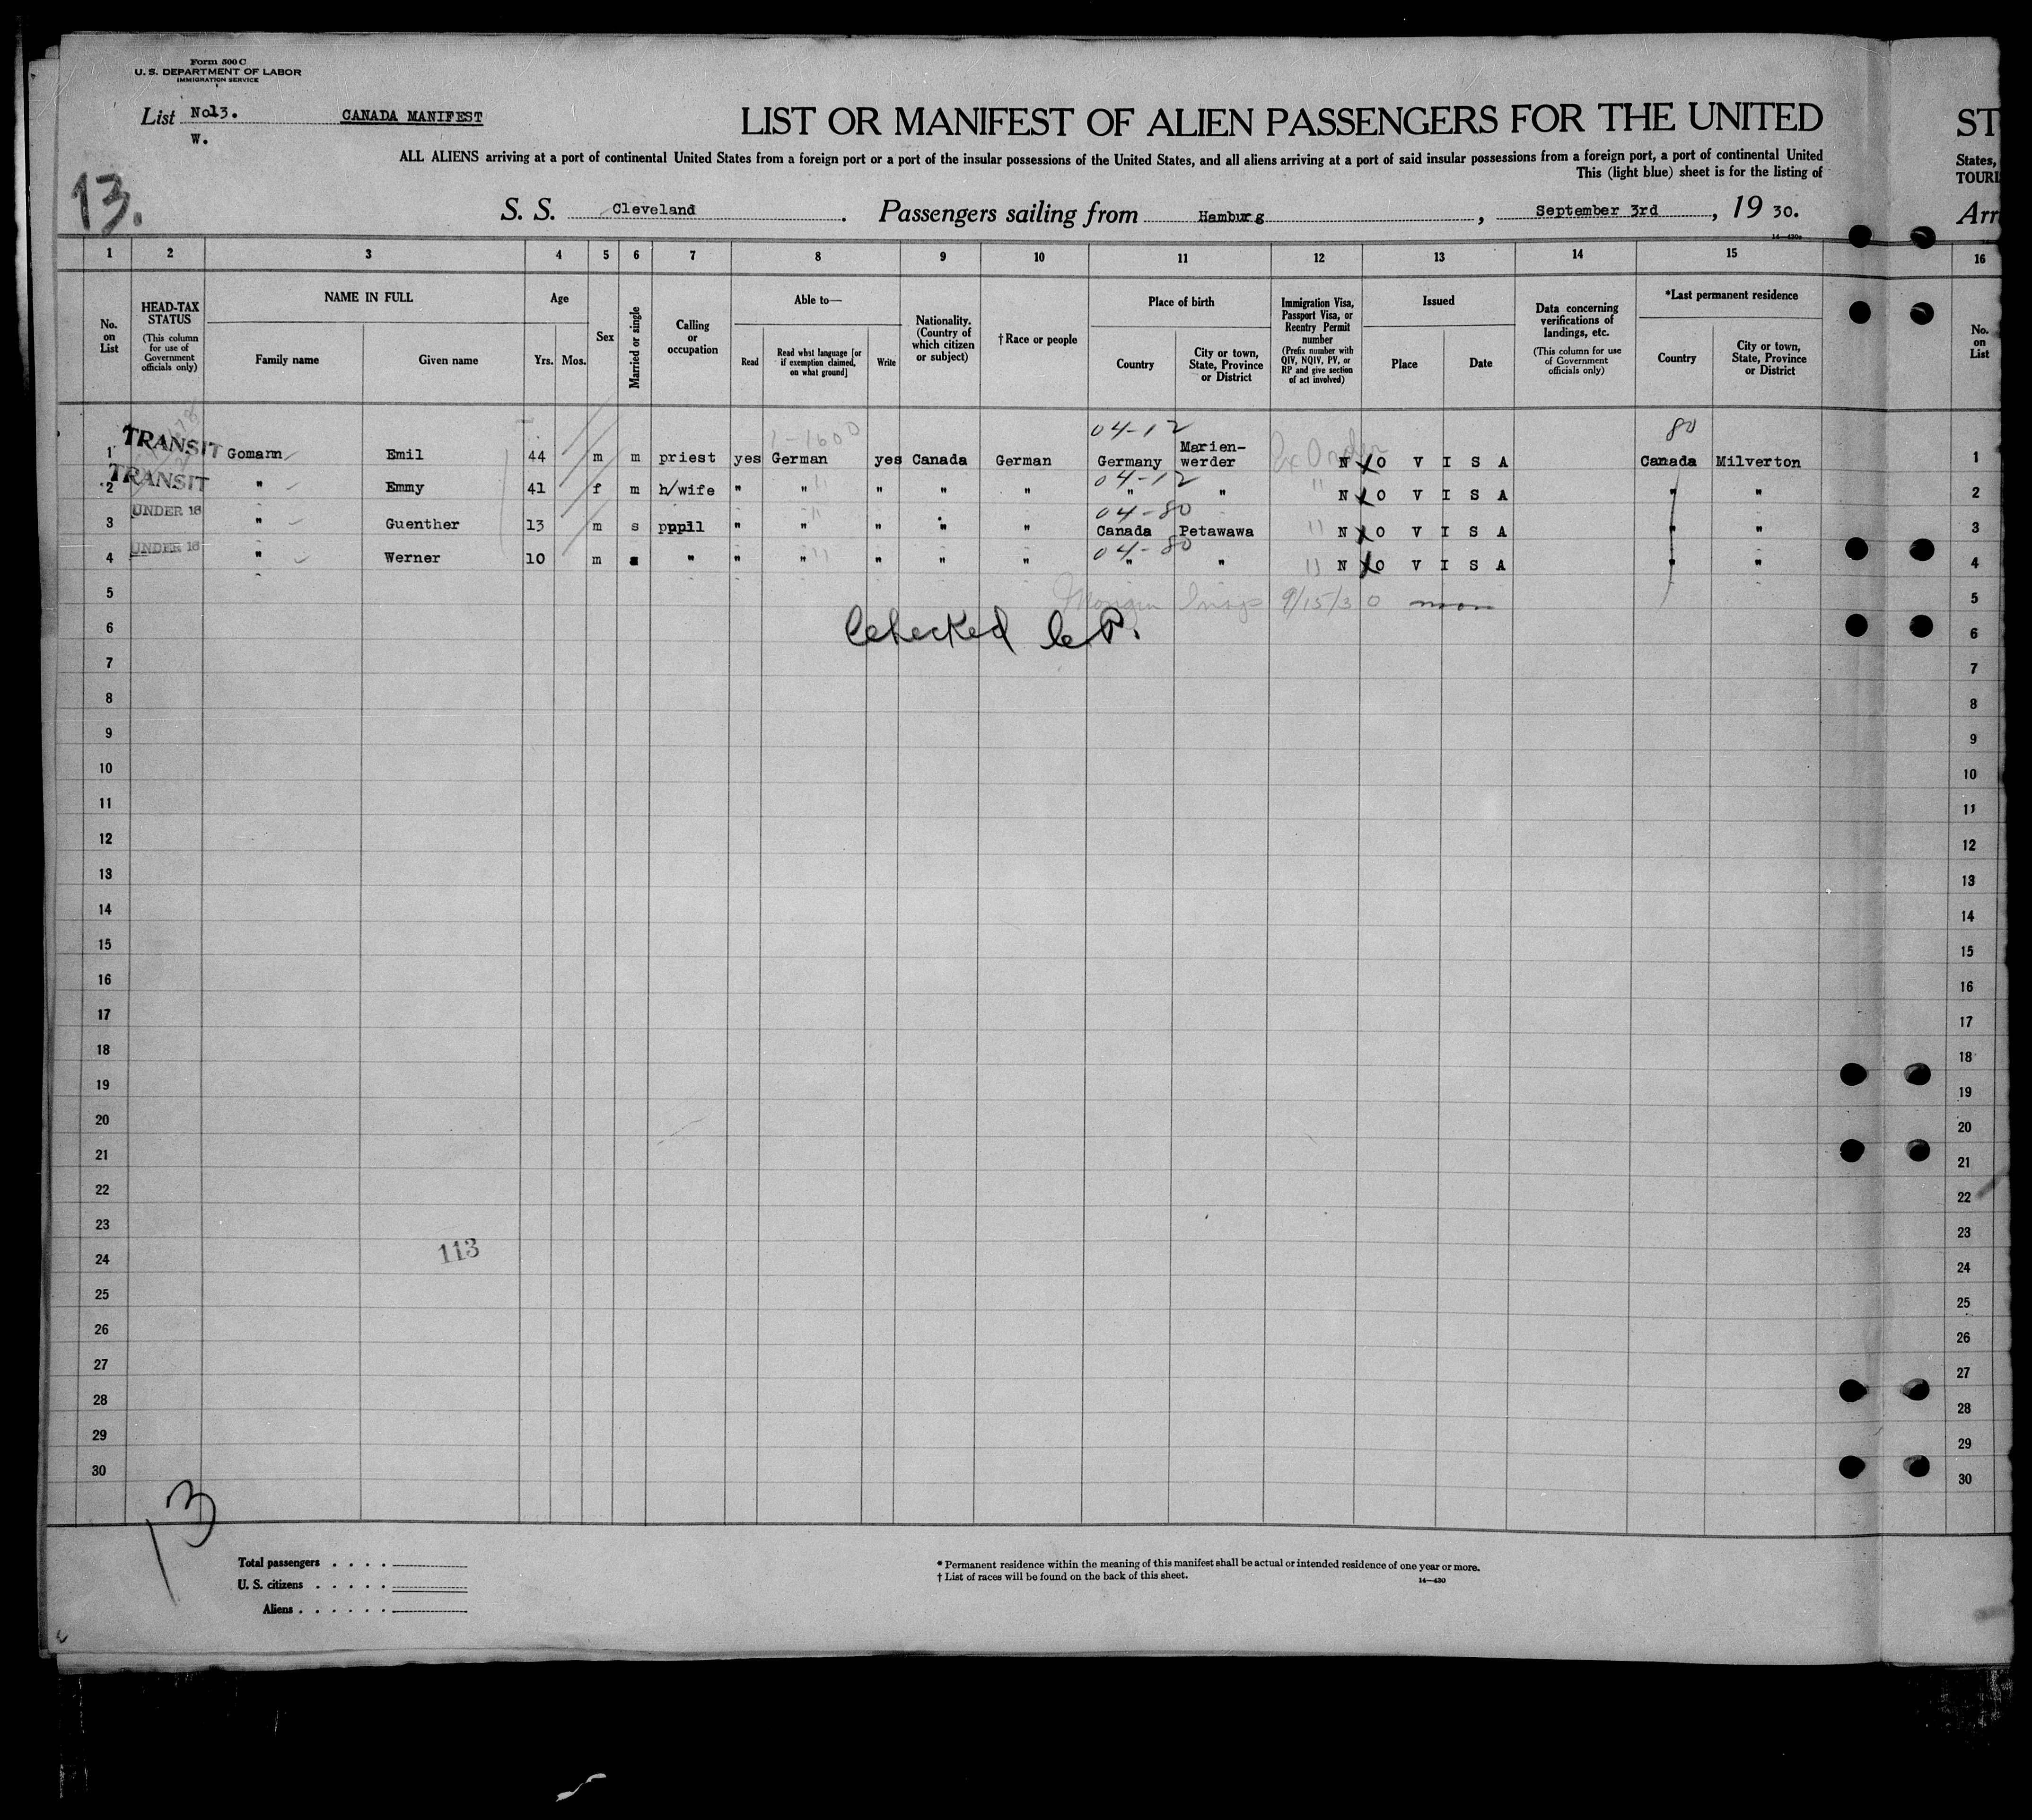 Form 500 C
U. S. DEPARTMENT OF LABOR
IMMIGRATION SERVICE
List No13. CANADA MANIFEST
W.
LIST OR MANIFEST OF ALIEN PASSENGERS FOR THE UNITED ST
ALL ALIENS arriving at a port of continental United States from a foreign port or a port of the insular possessions of the United States, and all aliens arriving at a port of said insular possessions from a foreign port, a port of continental United States,
This (light blue) sheet is for the listing of TOURI
13.
S. S. Cleveland. Passengers sailing from Hamburg, September 3rd, 19 30. Arr
14—430a
1 2 3 4 5 6 7 8 9 10 11 12 13 14 15 16
No. on List
HEAD-TAX STATUS
(This column for use of Government officials only)
NAME IN FULL
Family name Given name
Age
Yrs. Mos.
Sex
Married or single
Calling or occupation
Able to—
Read
Read what language [or if exemption claimed, on what ground]
Write
Nationality. (Country of which citizen or subject)
†Race or people
Place of birth
Country
City or town, State, Province or District
Immigration Visa, Passport Visa, or Reentry Permit number
(Prefix number with QIV, NQIV, PV, or RP and give section of act involved)
Issued
Place Date
Data concerning verifications of landings, etc.
(This column for use of Government officials only)
*Last permanent residence
Country
City or town, State, Province or District
No. on List
1-1600 04-12 80
1 TRANSIT Gomann Emil 44 m m priest yes German yes Canada German Germany Marien-werder Ex Order N O V I S A Canada Milverton 1
04-12
2 TRANSIT " Emmy 41 f m h/wife " " " " " " " " N O V I S A " " 2
04-80
3 UNDER 16 " Guenther 13 m s pupil " " " " " Canada Petawawa " N O V I S A " " 3
04-80
4 UNDER 16 " Werner 10 m s " " " " " " " " " N O V I S A " " 4
5 Insp 9/15/30 5
Checked
6 6
7 7
8 8
9 9
10 10
11 11
12 12
13 13
14 14
15 15
16 16
17 17
18 18
19 19
20 20
21 21
22 22
23 23
113
24 24
25 25
26 26
27 27
28 28
29 29
30 30
13
Total passengers . . . .
U. S. citizens . . . . .
Aliens . . . . . .
* Permanent residence within the meaning of this manifest shall be actual or intended residence of one year or more.
† List of races will be found on the back of this sheet.
14—430